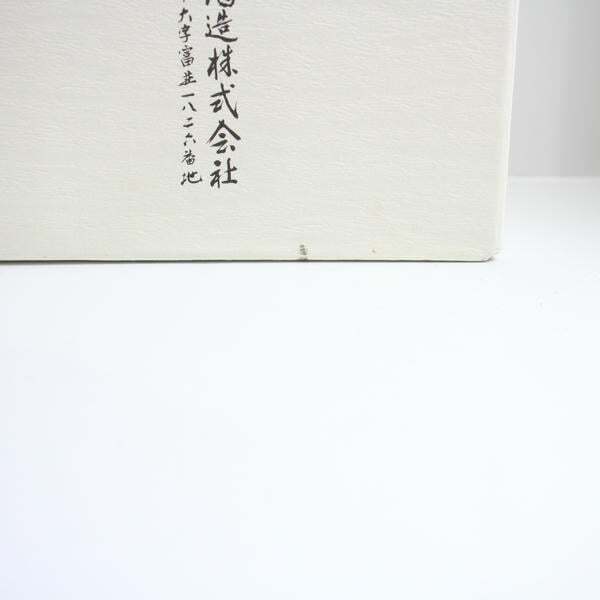 造株式会社
大字富並一八二六番地